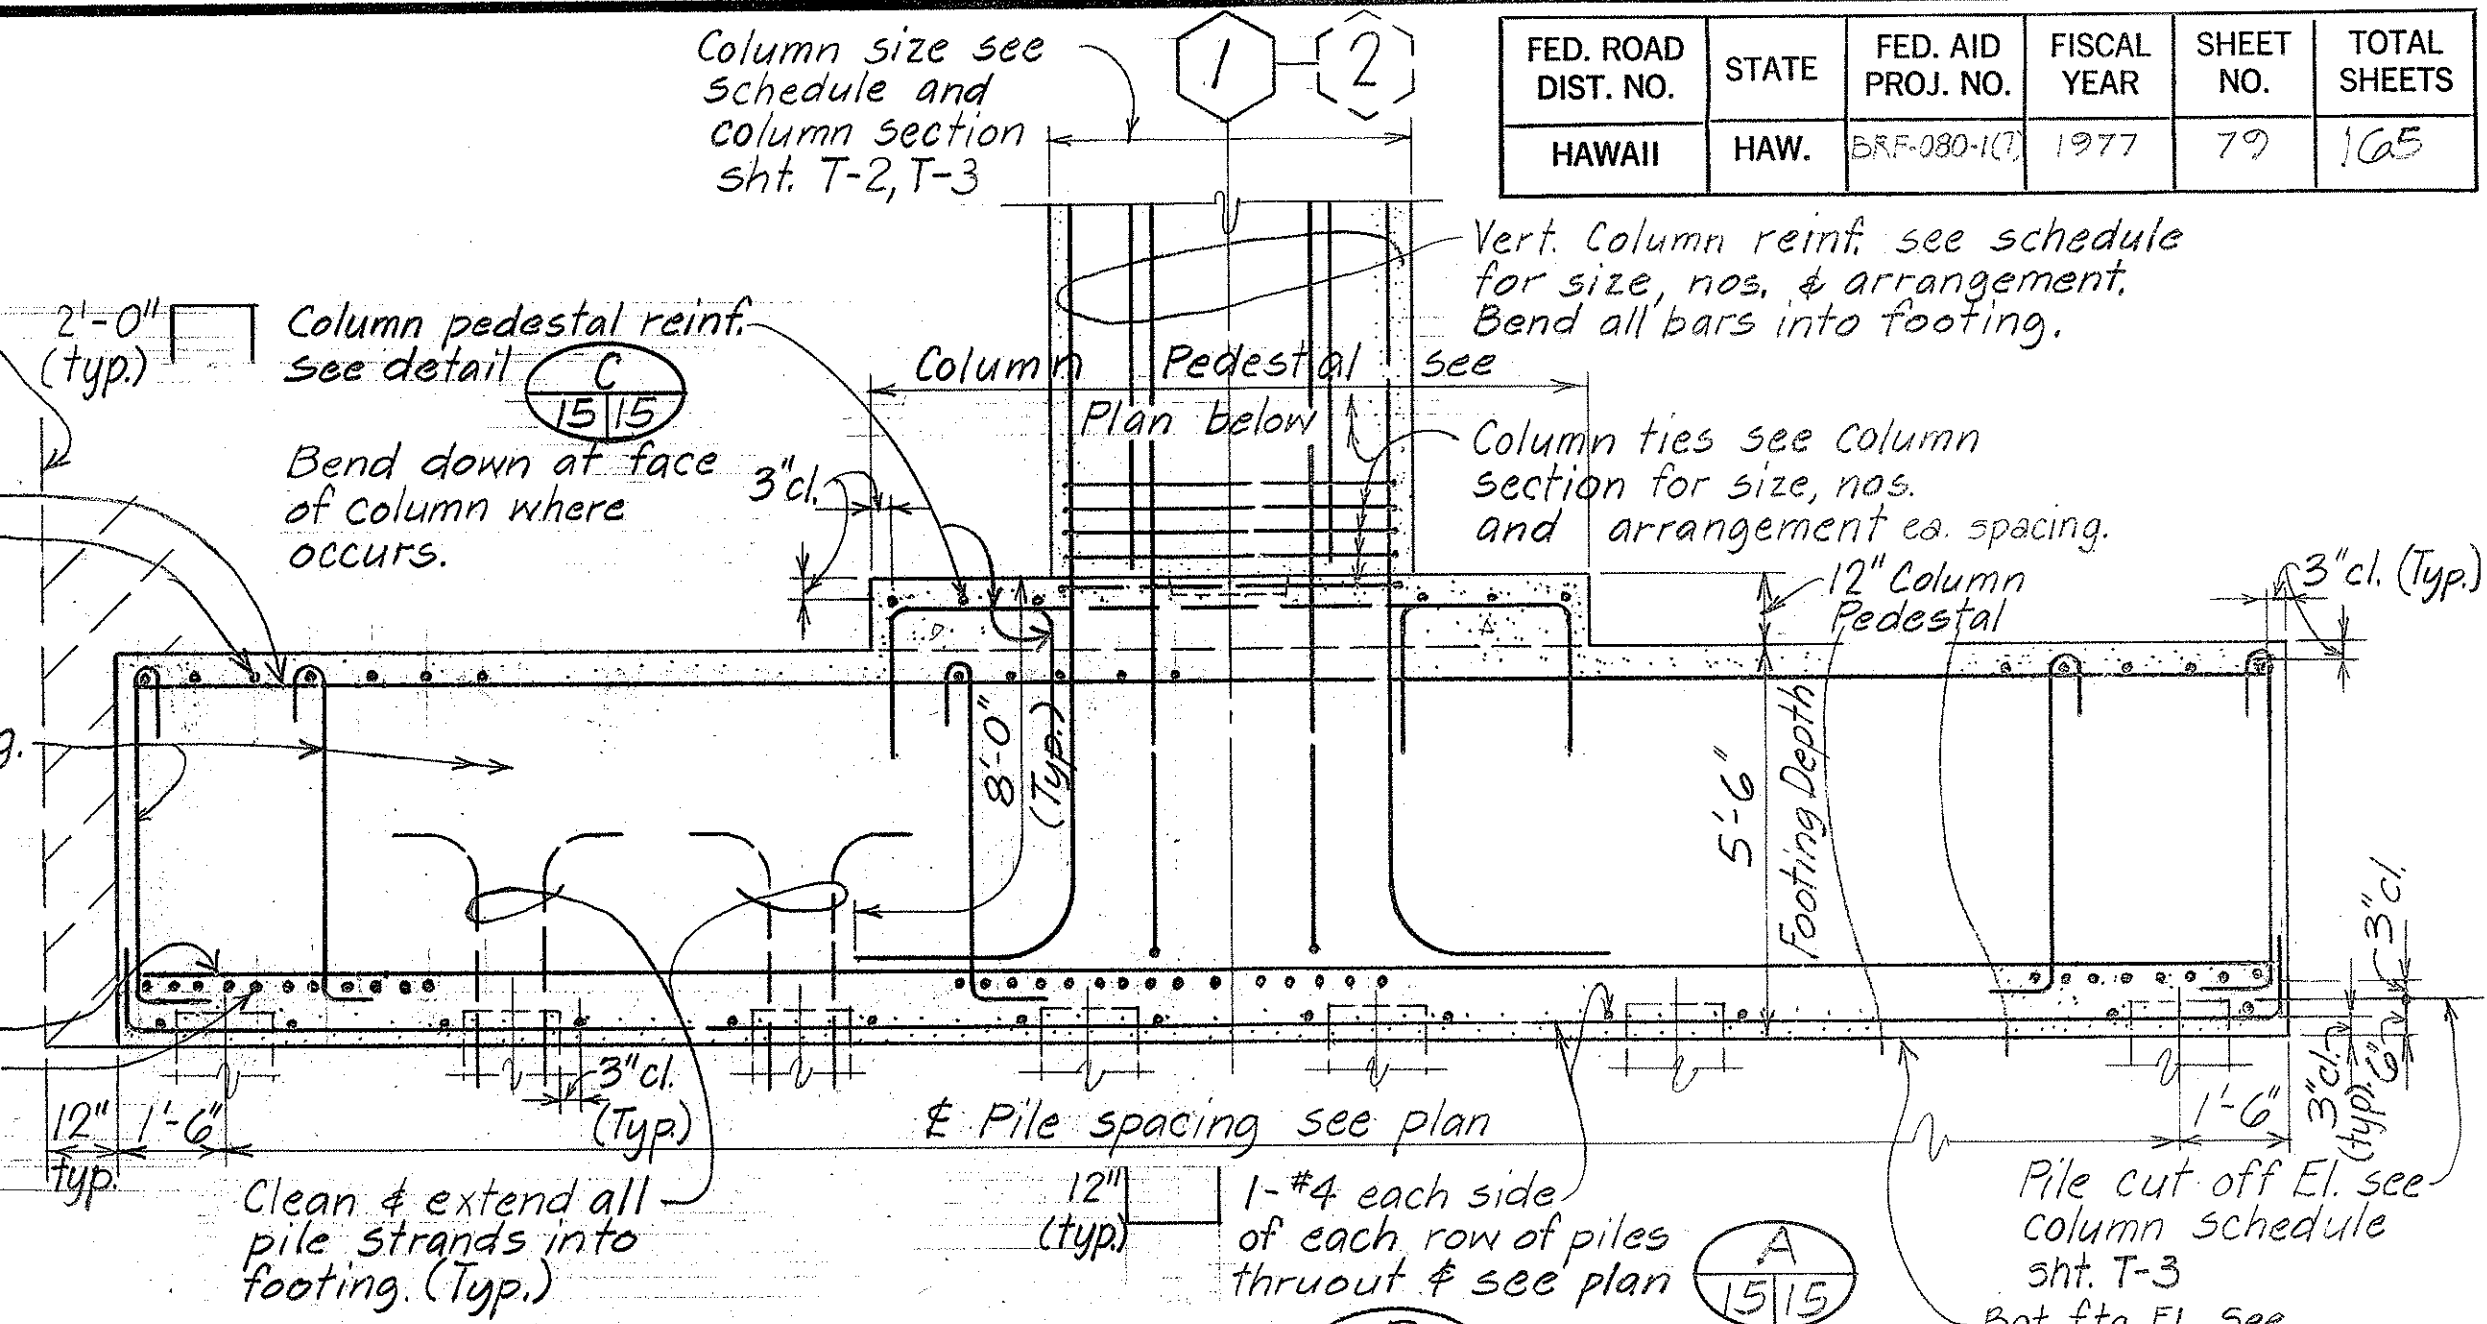 Column size see
schedule and
column section
sht. T-2, T-3
1
2
FED. ROAD DIST. NO.
STATE
FED. AID PROJ. NO.
FISCAL YEAR
SHEET NO.
TOTAL SHEETS
HAWAII
HAW.
BRF-080-1(7)
1977
79
165
Vert. Column reinf. see schedule
for size, nos. & arrangement.
Bend all bars into footing.
2'-0"
(typ.)
Column pedestal reinf.
see detail
C
15|15
Bend down at face
of column where
occurs.
3"cl.
Column Pedestal see
Plan below
Column ties see column
section for size, nos.
and arrangement ea. spacing.
12" Column
Pedestal
3"cl. (Typ.)
g.
8'-0"
(Typ.)
5'-6"
Footing Depth
3"cl.
6"
3"cl.
(typ.)
12"
typ.
1'-6"
3"cl.
(Typ.)
℄ Pile spacing see plan
1'-6"
Clean & extend all
pile strands into
footing. (Typ.)
12"
(typ.)
1-#4 each side
of each row of piles
thruout & see plan
A
15|15
Pile cut off El. see
column schedule
sht. T-3
Bot. ftg. El. see